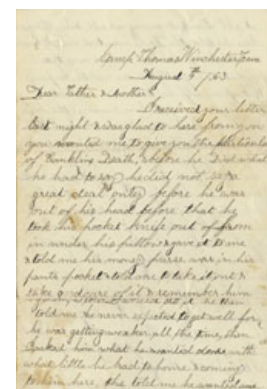 Camp Thomas Winchester Tenn
August 5th /63
Dear Father & Mother
I received your letter
last night & was glad to hare from you
you wanted me to give you the particulars
of Franklins Death, where he Died what
he had to say he did not say a
great deal only before he was
out of his head before that he
took his pocket knife out of from
in under his pillow & gave it to me
& told me his money purse was in his
pants pocket & told me to take it out &
take good care of it & remember him
he then
told me he never expected to get well for
he was getting weaker all the time, then
I asked him what he wanted done with
what little he had to home & coming
to him here, he told me he wanted